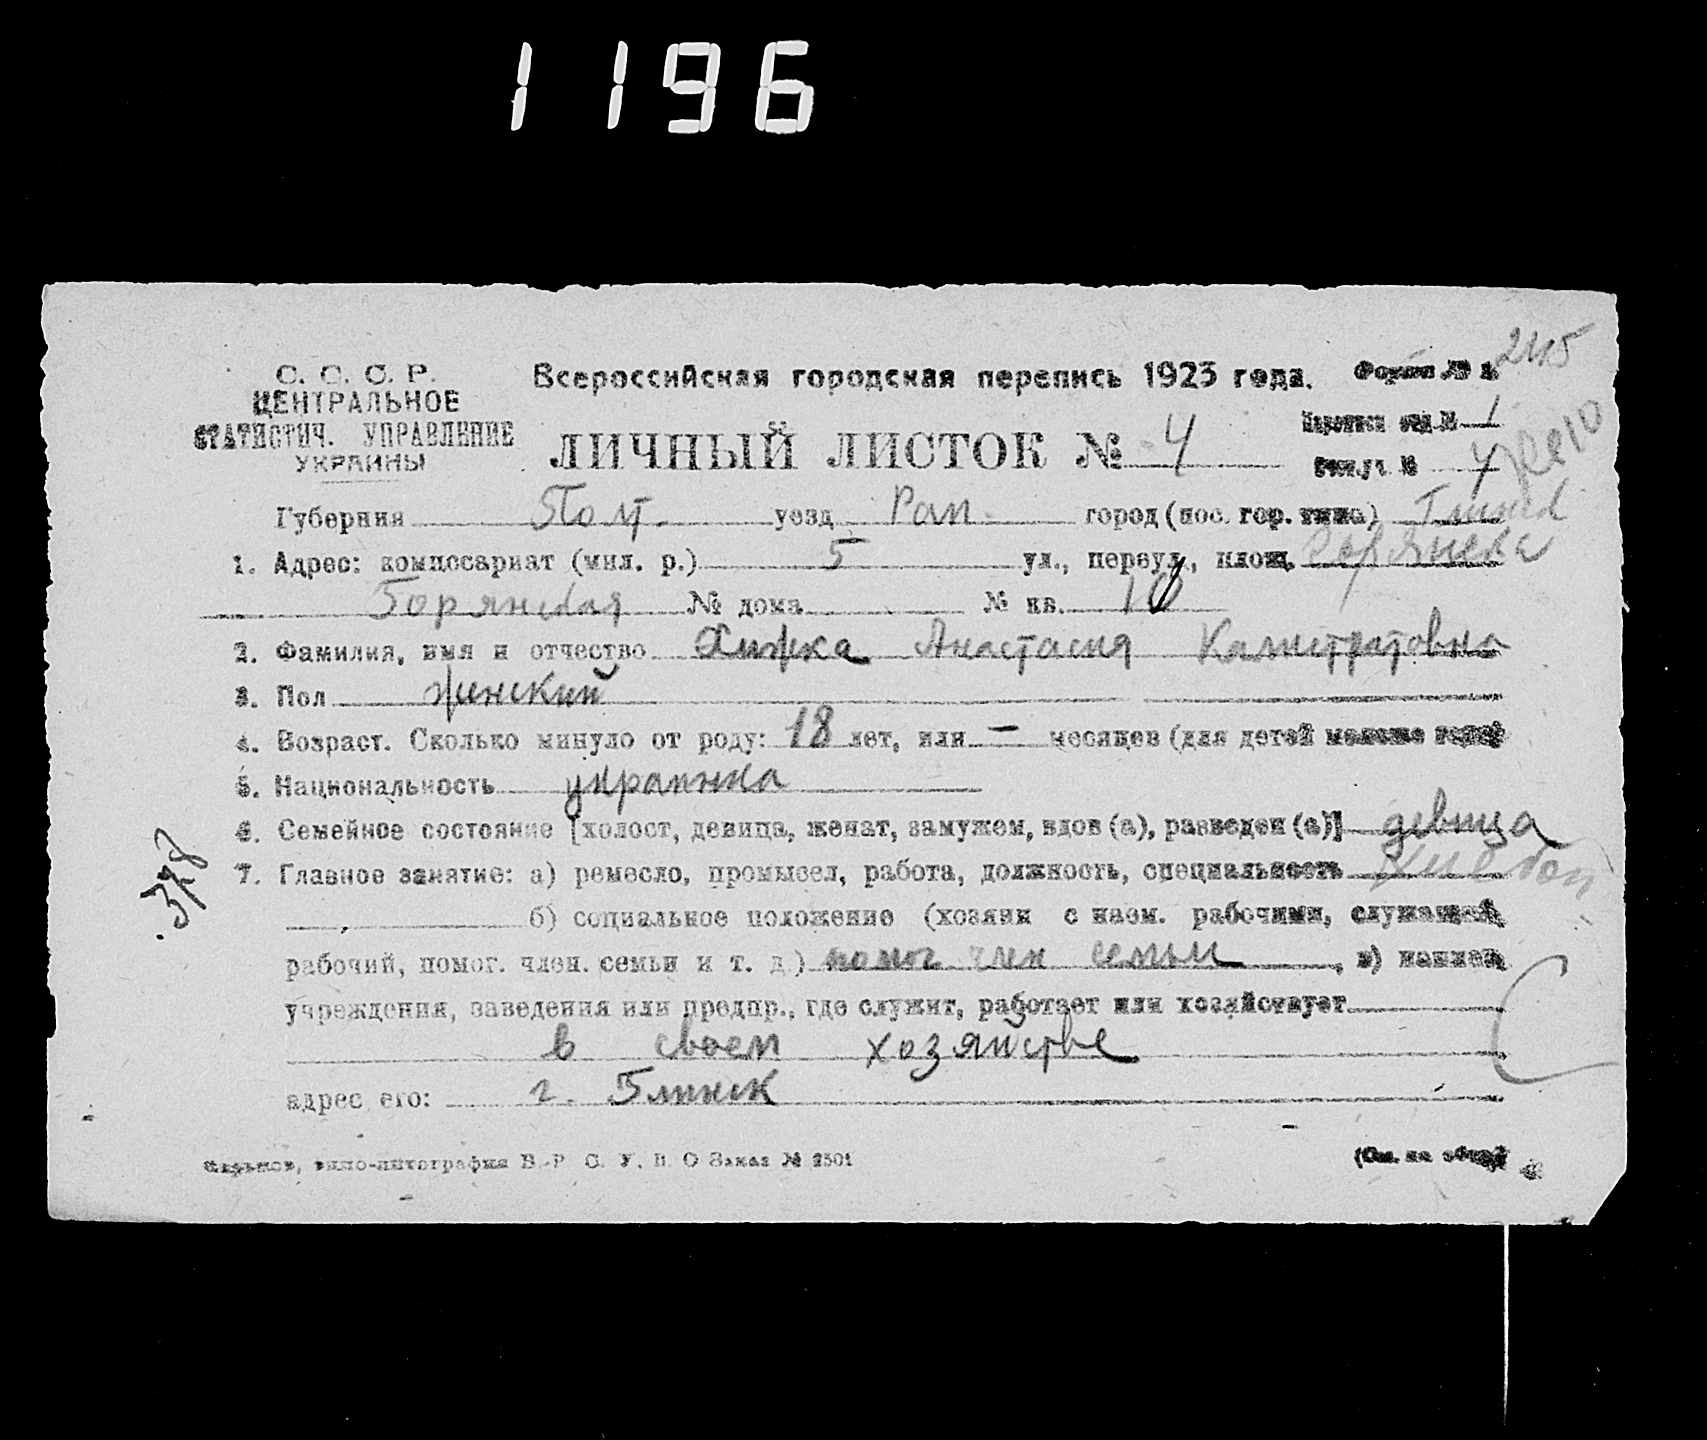 1196
245
С. С. С. Р.
ЦЕНТРАЛЬНОЕ
СТАТИСТИЧ. УПРАВЛЕНИЕ
УКРАИНЫ
Всероссийская городская перепись 1923 года.
Форма № 1
ЛИЧНЫЙ ЛИСТОК № 4
№ 1
№ 4
Губерния Полт. уезд Ром. город (пос. гор. типа)
1. Адрес: комиссариат (мил. р.) 5 ул., переул., площ.
Борянская № дома № кв. 10
2. Фамилия, имя и отчество Хижка Анастасия Калистратовна
3. Пол женский
4. Возраст. Сколько минуло от роду: 18 лет, или — месяцев (для детей моложе года)
5. Национальность украинка
6. Семейное состояние [холост, девица, женат, замужем, вдов (а), разведен (а)] девица
378
7. Главное занятие: а) ремесло, промысел, работа, должность, специальность
б) социальное положение (хозяин с наем. рабочими, служащий,
рабочий, помог. член. семьи и т. д.) помог член семьи, в) наимен.
учреждения, заведения или предпр., где служит, работает или хозяйствует
в своем хозяйстве
адрес его: г. Глинск
Харьков, типо-литография В. Р. С. У. В. О Заказ № 2501
(См. на обор.)